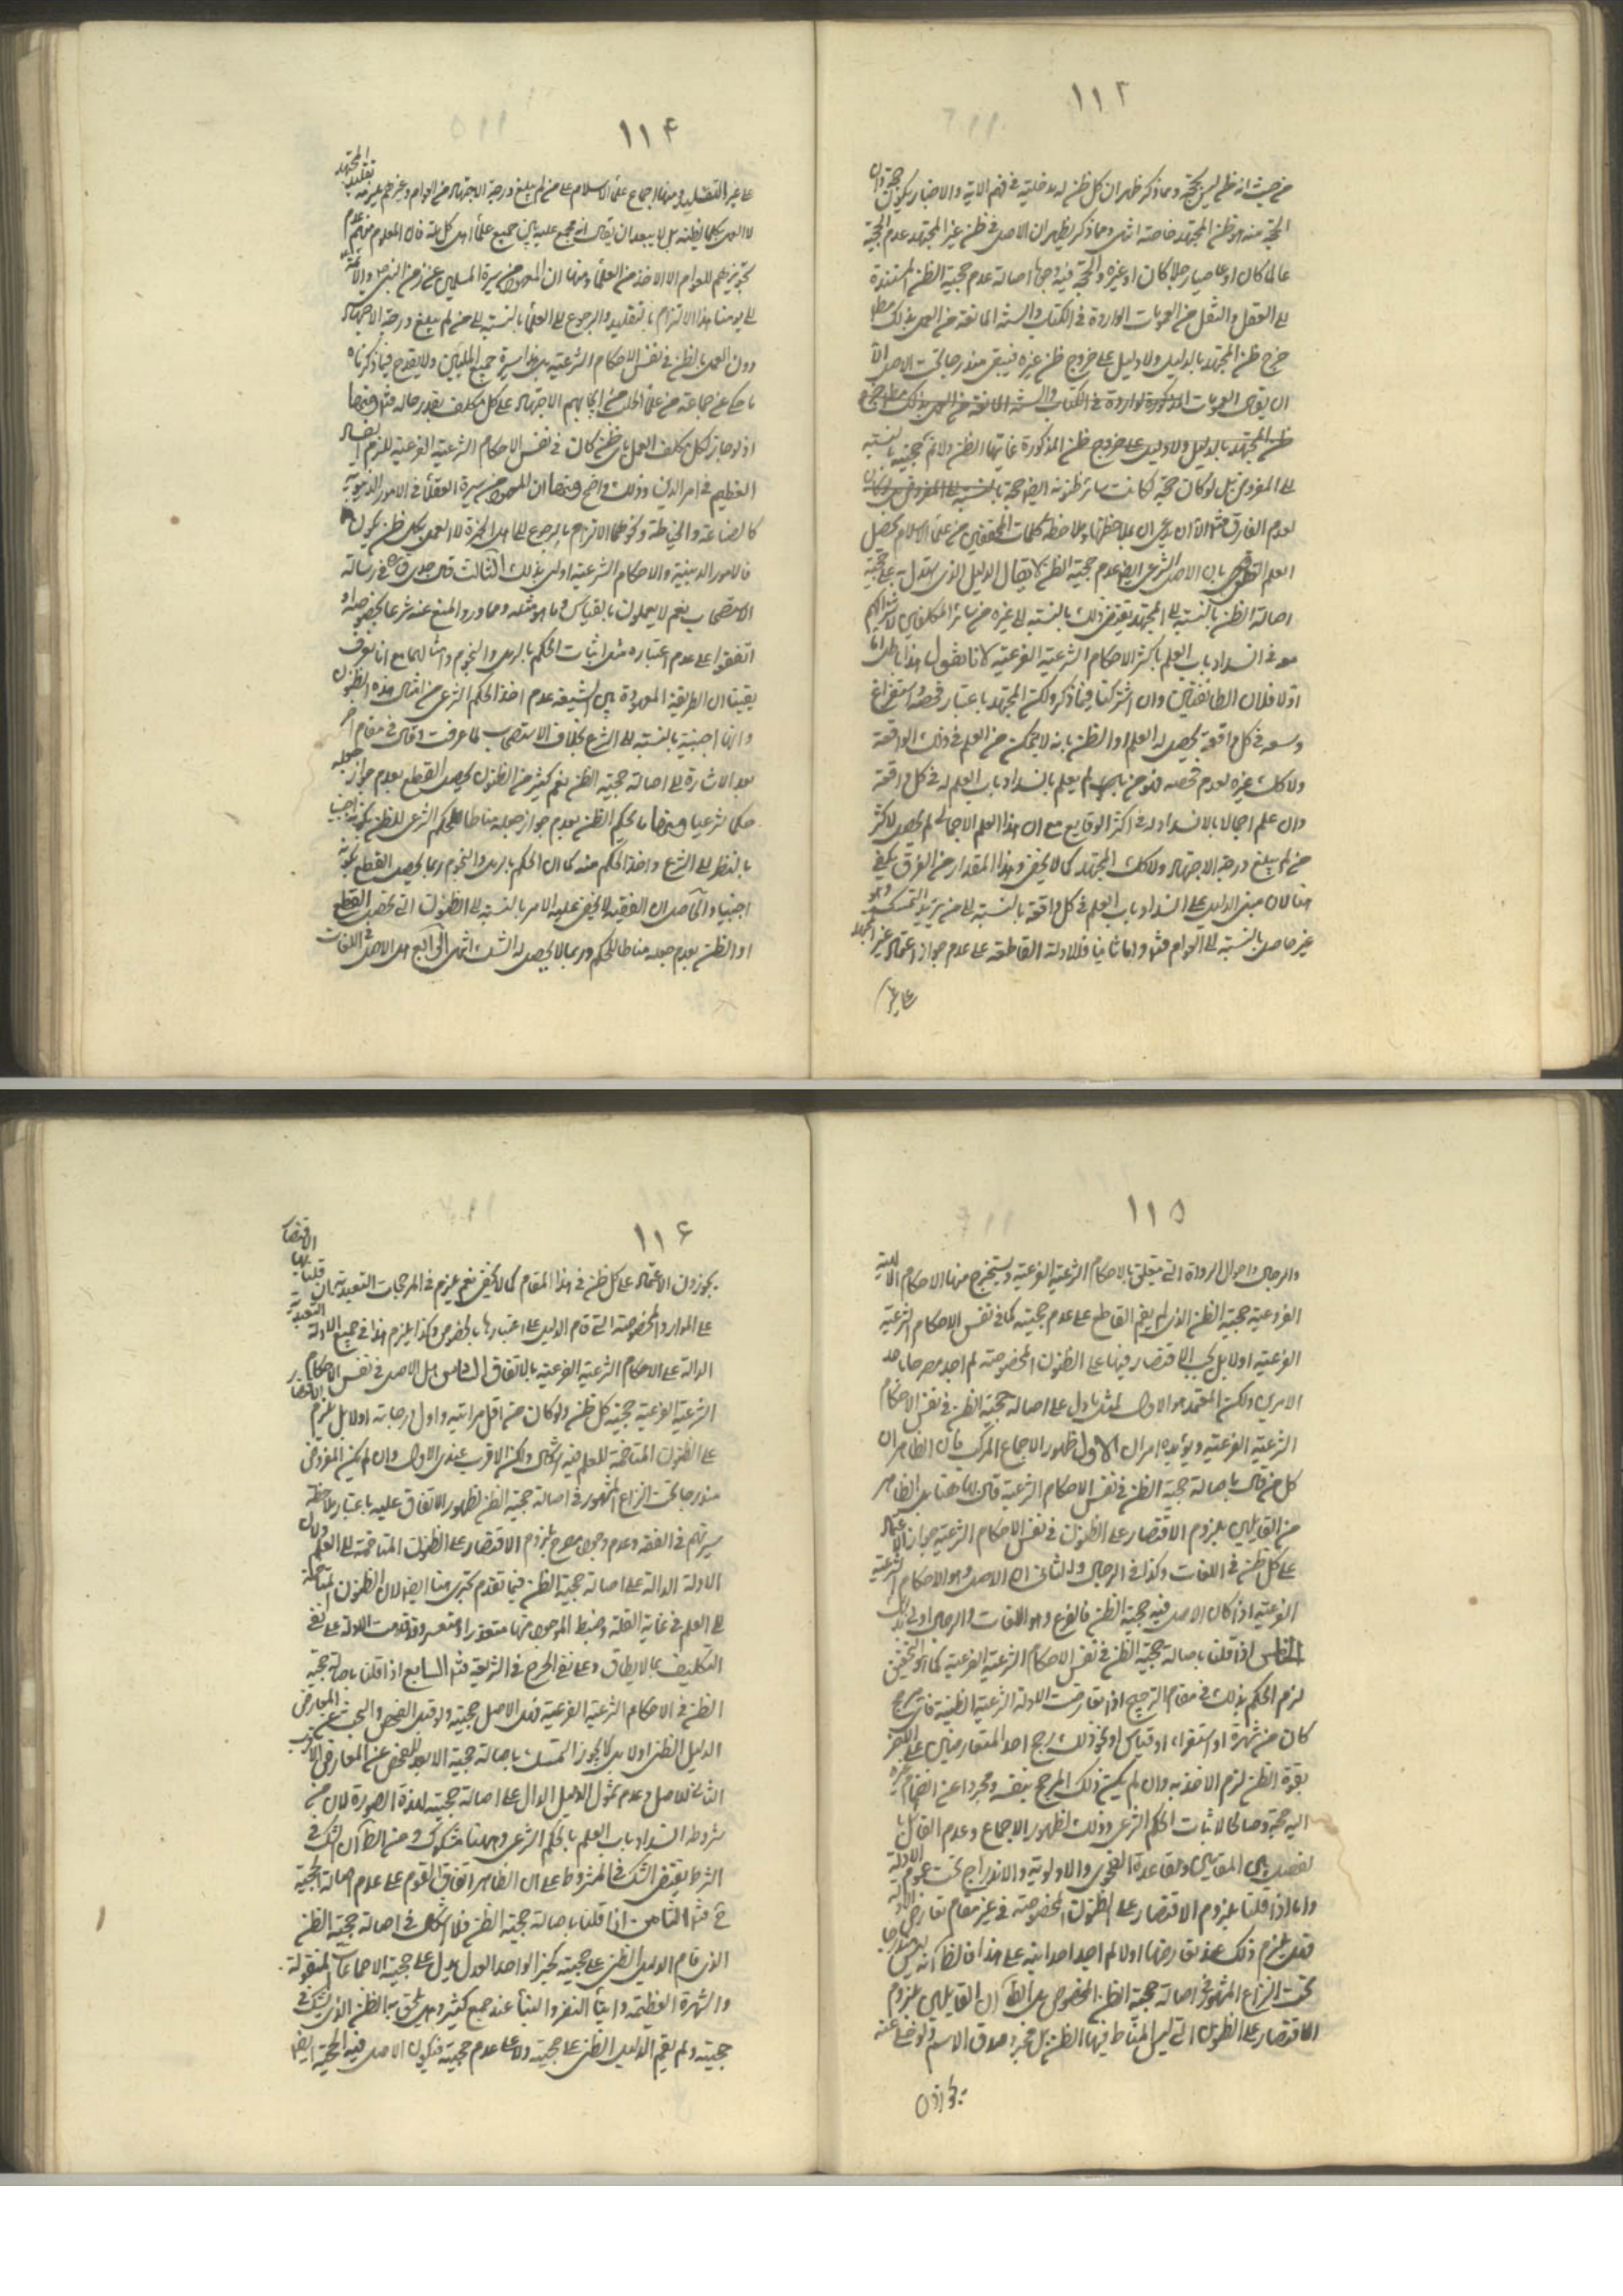 ١١٣
من حيث انه ظن ليس بحجة ومما ذكر ظهر ان كل ظن له مدخلية في فهم الاية والاخبار يكون حجة وان
الحجة منه هو ظن المجتهد خاصة انتهى ومما ذكر يظهر ان الاصل في ظن غير المجتهد عدم الحجية
عالما كان او عاميا رجلا كان او غيره والحجة فيه وجوها اصالة عدم حجية الظن المستندة
الى العقل والنقل من العمومات الواردة في الكتاب والسنة المانعة من العمل بذلك مط
خرج ظن المجتهد بالدليل ولا دليل على خروج ظن غيره فيبقى مندرجا تحت الاصل الا
ان يقال العمومات المذكورة الواردة في الكتاب والسنة المانعة من العمل بذلك مط خرج
ظن المجتهد بالدليل ولا دليل على خروج ظن المذكورة غايتها الظن ولا نم حجيته بالنسبة
الى المفروض بل لو كان حجة لكانت سائر ظنونه ايض حجة بالنسبة الى المفروض
لعدم الفارق فت الا ان يدعى ان بملاحظتها وملاحظة كلمات المحققين من علماء الاسلام يحصل
العلم القطعى بان الاصل الشرعي ايض عدم حجية الظن لا يقال الدليل الذى يستدل به على حجية
اصالة الظن بالنسبة الى المجتهد يقتضى ذلك بالنسبة الى غيره من سائر المكلفين لاشتراكهم
معه في انسداد باب العلم باكثر الاحكام الشرعية الفرعية لانا نقول هذا باطل اما
اولا فلان الطائفتين وان اشتركتا فيما ذكر ولكن المجتهد باعتبار فحصه واستفراغ
وسعه في كل واقعة يحصل له العلم او الظن بانه لا يتمكن من العلم في ذلك الواقعة
ولا كك غيره لعدم فحصه فلو لم يعلم بانسداد باب العلم له في كل واقعة
وان علم اجمالا بالانسداد له في اكثر الوقايع مع ان هذا العلم الاجمالى لم يحصل لاكثر
من لم يبلغ درجة الاجتهاد ولا كك المجتهد كما لا يخفى وهذا المقدار من الفرق يكفى
هنا لان مبنى الدليل على انسداد باب العلم في كل واقعة بالنسبة الى من يريد التمسك وهو
غير حاصل بالنسبة الى العوام فت واما ثانيا فللادلة القاطعة على عدم جواز اعتماد غير المجتهد
على غير
١١۴
على غير التقليد ومنها اجماع علماء الاسلام على من لم يبلغ درجة الاجتهاد من العوام وغيرهم يلزمه تقليد المجتهد
لا العمل بكلما يظنه بل لا يبعد ان يقال انه مجمع عليه بين جميع علماء اهل كل ملة فان المعلوم منهم عدم
تجويزهم للعوام الا الاخذ من العلماء ومنها ان المعهود من سيرة المسلمين من زمن النبى ص والائمة
الى يومنا هذا الالتزام بالتقليد والرجوع الى العلماء بالنسبة الى من لم يبلغ درجة الاجتهاد
دون العمل بالظن في نفس الاحكام الشرعية بل هذا سيرة جميع المليين ولا يقدح فيما ذكرناه
ما حكى عن جماعة من علماء الحلب من ايجابهم الاجتهاد على كل مكلف بقدر حاله فت ومنها
اذ لو جاز لكل مكلف العمل باى ظن كان في نفس الاحكام الشرعية الفرعية للزم الفساد
العظيم في امر الدين وذلك واضح ومنها ان المعهود من سيرة العقلاء في الامور الدنيوية
كالصناعة والخياطة ونحوهما الالتزام بالرجوع الى اهل الخبرة لا العمل بكل ظن يكون
فالامور الدينية والاحكام الشرعية اولى بذلك الثالث قال جدى قده في رسالة
الاستصحاب نعم لا يعملون بالقياس وما هو مثله ومما ورد المنع عنه شرعا بخصوصه او
اتفقوا على عدم اعتباره مثل اثبات الحكم بالرمل والنجوم وامثالهما مع انا نعرف
يقينا ان الطريقة المعهودة بين الشيعة عدم اخذ الحكم الشرعى من امثال هذه الظنون
وانها اجنبية بالنسبة الى الشرع بخلاف الاستصحاب لما عرفت وقال في مقام اخر
بعد الاشارة الى اصالة حجية الظن نعم كثير من الظنون يحصل القطع بعدم جواز جعله
حكما شرعيا ومنها ما يحكم الظن بعدم جواز جعله مناطا للحكم الشرعى للظن بكونه اجنبيا
بالنظر الى الشرع واخذ الحكم منه كما ان الحكم بالرمل والنجوم ربما يحصل القطع بكونه
اجنبيا والحاصل ان الفقيه لا يخفى عليه الامر بالنسبة الى الظنون التى تحصل القطع
او الظن بعدم جعله مناطا للحكم وربما لا يحصل له الشك انتهى الرابع هل الاصل في اللغات
١١۵
والرجال واحوال الرواة التى يتعلق بالاحكام الشرعية الفرعية ويستخرج منها الاحكام الالهية
الفروعية حجية الظن الذى لم يقم القاطع على عدم حجيته كما في نفس الاحكام الشرعية
الفرعية اولا بل يجب الاقتصار فيها على الظنون المخصوصة لم اجد مصرحا باحد
الامرين ولكن المعتمد هو الاول لمثل ما دل على اصالة حجية الظن في نفس الاحكام
الشرعية الفرعية ويؤيده امران الاول ظهور الاجماع المركب فان الظاهر ان
كل من قال باصالة حجية الظن في نفس الاحكام الشرعية قال بها هنا بل الظاهر
من القايلين بلزوم الاقتصار على الظنون في نفس الاحكام الشرعية جواز الاعتماد
على كل ظن في اللغات وكذا في الرجال والثانى ان الاصل وهو الاحكام الشرعية
الفرعية اذا كان الاصل فيه حجية الظن فالفرع وهو اللغات والرجال اولى بذلك
الخامس اذا قلنا باصالة حجية الظن في نفس الاحكام الشرعية الفرعية كما هو التحقيق
لزم الحكم بذلك في مقام الترجيح اذا تعارضت الادلة الشرعية الظنية فاى مرجح
كان من شهرة او استقراء او قياس او نحو ذلك رجح احد المتعارضين على الاخر
بقوة الظن لزم الاخذ به وان لم يكن ذلك المرجح بنفسه ومجردا عن انضمام غيره
اليه حجة وصالحا لاثبات الحكم الشرعى وذلك لظهور الاجماع وعدم القائل با
لفصل بين المقامين ولقاعدة الفحوى والاولوية والاندراج تحت عموم الادلة
واما اذا قلنا بلزوم الاقتصار على الظنون المخصوصة في غير مقام تعارض الادلة
فهل يلزم ذلك عند تعارضها اولا لم اجد احدا نبه على هذا فالظ انه ليس مندرجا
تحت النزاع المشهور في اصالة حجية الظن المخصوص بل الظ ان القايلين بلزوم
الاقتصار على الظنون التى ليس المناط فيها الظن بل مجرد صدق الاسم ولو خلى عنه
يجوزون
١١۶
يجوزون الاعتماد على كل ظن في هذا المقام كما لا يخفى نعم يلزم في المرجحات التعبدية ان قلنا بها الاقتصار
على الموارد المخصوصة التى قام الدليل على اعتبارها بالخصوص وكذا يلزم هذا في جميع الادلة التعبدية
الدالة على الاحكام الشرعية الفرعية بالاتفاق السادس هل الاصل في نفس الاحكام
الشرعية الفرعية حجية كل ظن ولو كان من اقل مراتبه واول درجاته اولا بل يلزم الاقتصار
على الظنون المتاخمة للعلم فيه اشكال ولكن الاقرب عندى الاول وان لم يكن المفروض
مندرجا تحت النزاع المشهور في اصالة حجية الظن لظهور الاتفاق عليه باعتبار ملاحظة
سيرتهم في الفقه وعدم وجود مصرح بلزوم الاقتصار على الظنون المتاخمة الى العلم ولان
الادلة الدالة على اصالة حجية الظن فيما تقدم تجرى هنا ايضا لان الظنون المتاخمة
الى العلم في غاية القلة وضبط الموجود منها متعذر او متعسر وقد قامت الادلة على نفى
التكليف بما لا يطاق وعلى نفى الحرج في الشريعة فت السابع اذا قلنا باصالة حجية
الظن في الاحكام الشرعية الفرعية فهل الاصل حجيته ولو قبل الفحص والبحث عن المعارض
الدليل الظنى اولا بل لا يجوز التمسك باصالة حجيته الا بعد الفحص عن المعارض الاقرب
الثانى للاصل وعدم شمول الدليل الدال على اصالة حجيته لهذه الصورة لان من
شروطه انسداد باب العلم بالحكم الشرعى وهو هنا مشكوك ومن الظ ان الشك في
الشرط يقتضى الشك في المشروط على ان الظاهر اتفاق القوم على عدم اصالة الحجية
ح فت الثامن اذا قلنا باصالة حجية الظن فلا اشكال في اصالة حجية الظن
الذى قام الدليل الظنى على حجيته كخبر الواحد العدل يدل على حجية الاجماعات المنقولة
والشهرة العظيمة وايتا النفر والنبأ عند جمع كثير وهل يلحق به الظن الذى يشك في
حجيته ولم يقم الدليل الظنى على حجيته ولا على عدم حجيته فيكون الاصل فيه الحجية ايض